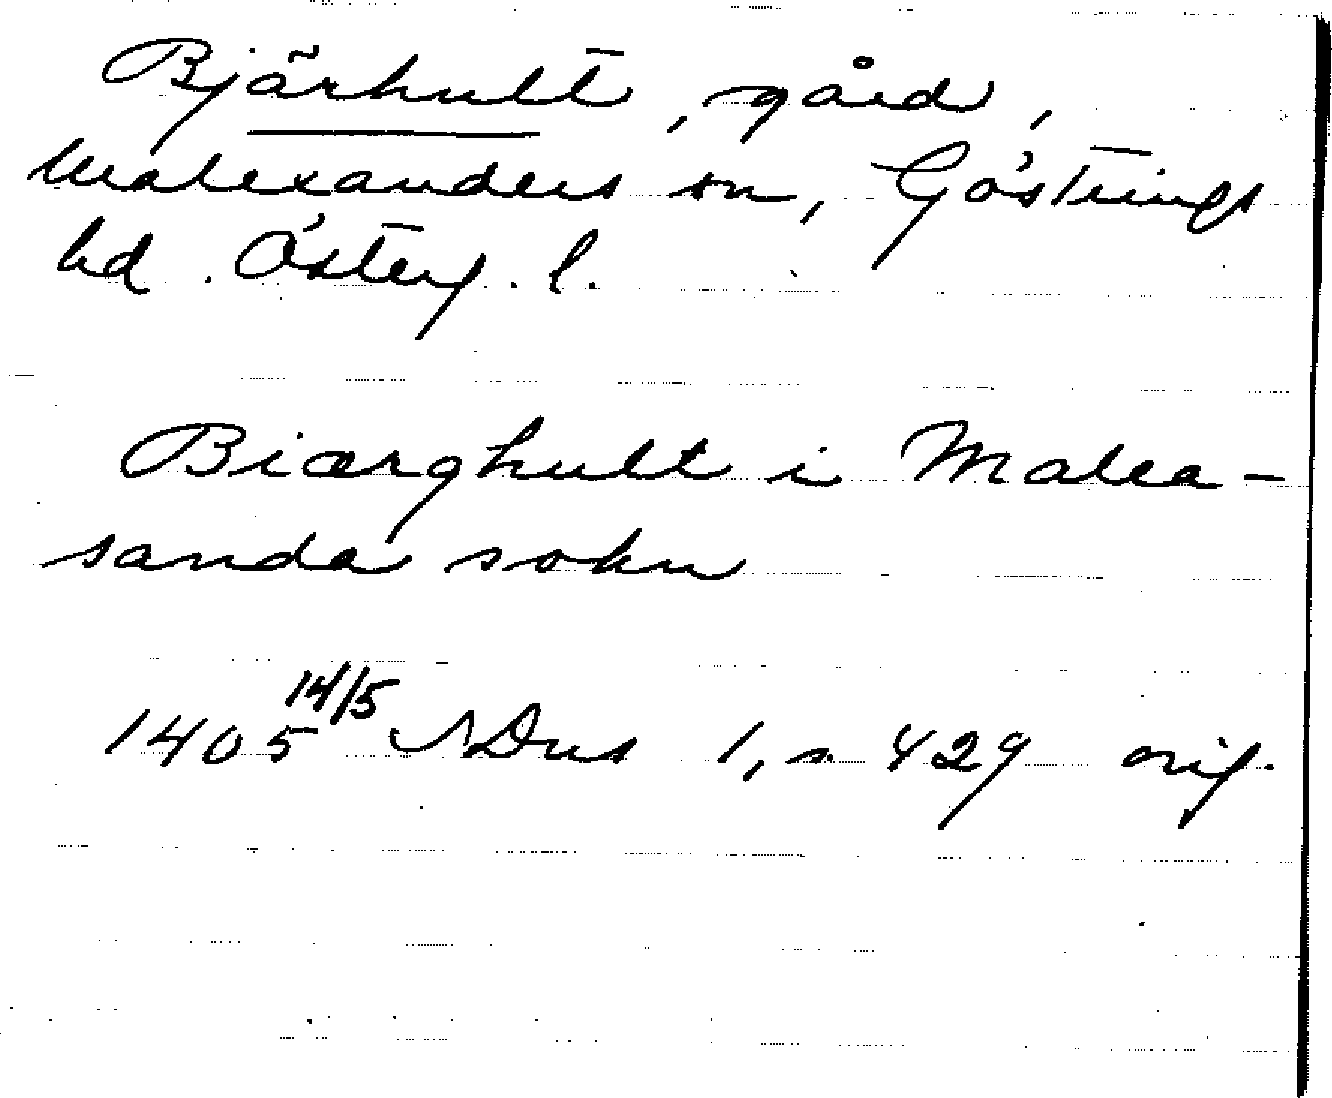 Bjärhult, gård,
Malexanders sn, Göstrings
hd. Österg. l.
Biærghult i Malea-
sanda sokn
1405 14/5 NDns 1, s. 429 orig.